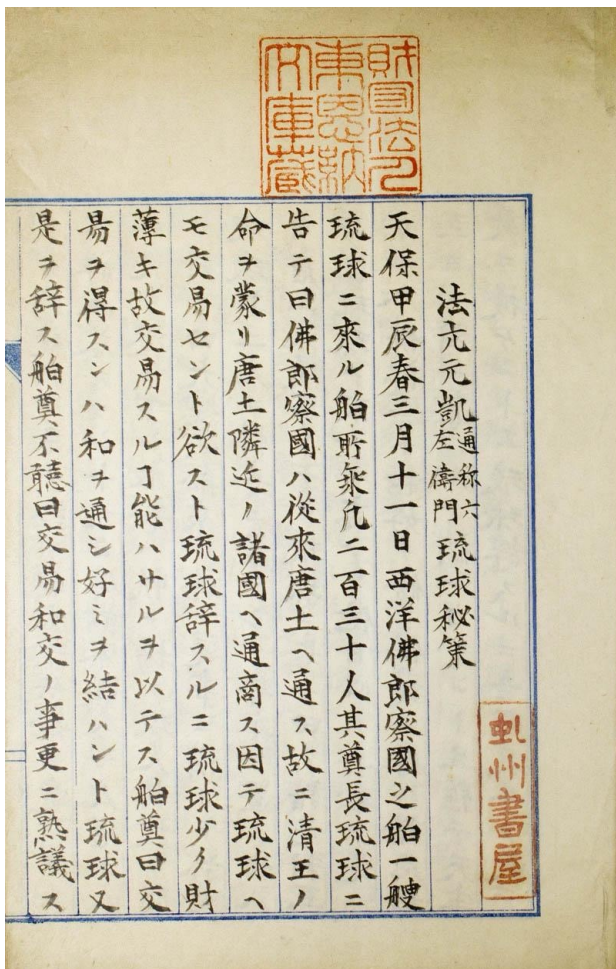 財團法人
東恩納
文庫蔵
虬州書屋
法亢元凱通称六左衛門琉球秘策
天保甲辰春三月十一日西洋佛郎察國之舶一艘
琉球ニ來ル舶所乗凢二百三十人其奠長琉球ニ
告テ曰佛郎察國ハ從來唐土ヘ通ス故ニ清王ノ
命ヲ蒙リ唐土隣近ノ諸國ヘ通商ス因テ琉球ヘ
モ交易セント欲スト琉球辞スルニ琉球少ク財
薄キ故交易スルヿ能ハサルヲ以テス舶奠曰交
易ヲ得スンハ和ヲ通シ好ミヲ結ハント琉球又
是ヲ辞ス舶奠不聴曰交易和交ノ事更ニ熟議ス